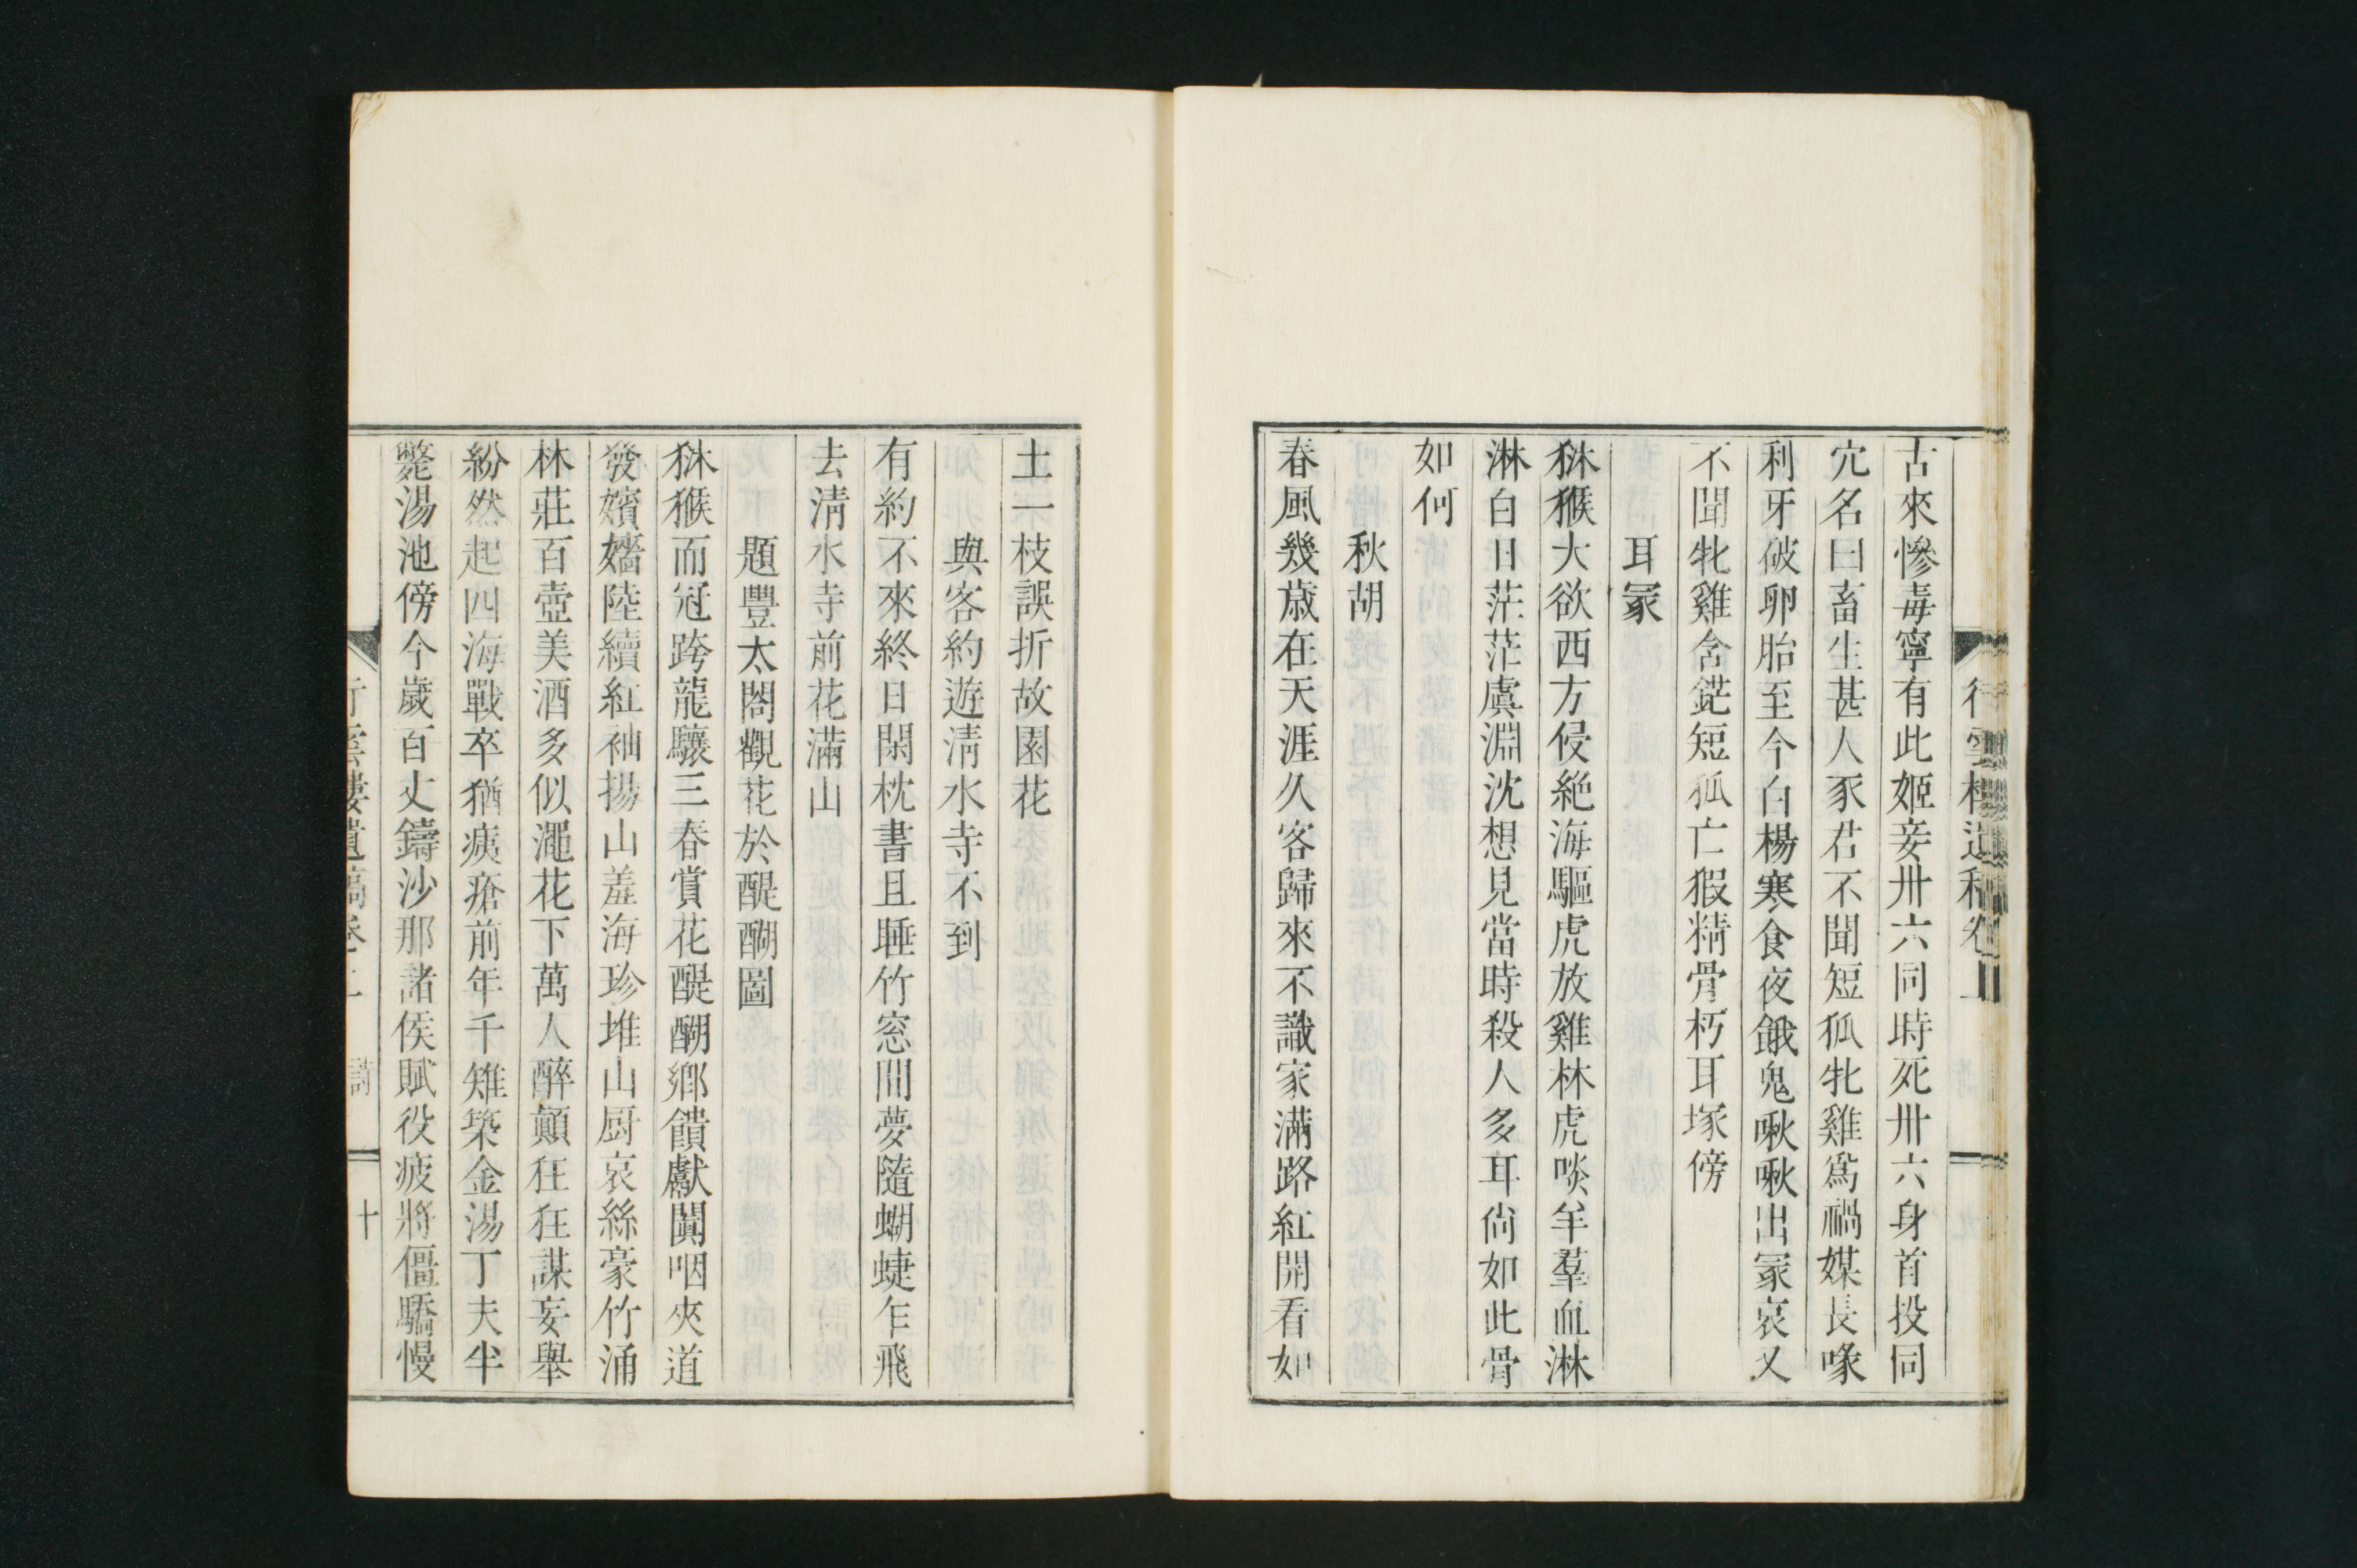 古來慘毒寧有此姬妾卅六同時死卅六身首投同
穴名曰畜生甚人豕君不聞短狐牝雞爲禍媒長喙
利牙破卵胎至今白楊寒食夜餓鬼啾啾出冢哀又
不聞牝雞含鋩短狐亡猳精骨朽耳塚傍
耳冢
猕猴大欲西方侵絶海驅虎放雞林虎啖羊羣血淋
淋白日茫茫虞淵沈想見當時殺人多耳尙如此骨
如何
秋胡
春風幾歲在天涯久客歸來不識家滿路紅開看如
土一枝誤折故園花
與客約遊淸水寺不到
有約不來終日閑枕書且睡竹窓間夢隨蝴蜨乍飛
去淸水寺前花滿山
題豐太閤觀花於醍醐圖
猕猴而冠跨龍驤三春賞花醍醐鄉饋獻闐咽夾道
發嬪嬙陸續紅袖揚山羞海珍堆山厨哀絲豪竹涌
林莊百壺美酒多似澠花下萬人醉顚狂狂謀妄舉
紛然起四海戰卒猶痍瘡前年千雉築金湯丁夫半
斃湯池傍今歲百丈鑄沙那諸侯賦役疲將僵驕慢
行雲樓遺稿卷上 詩 十